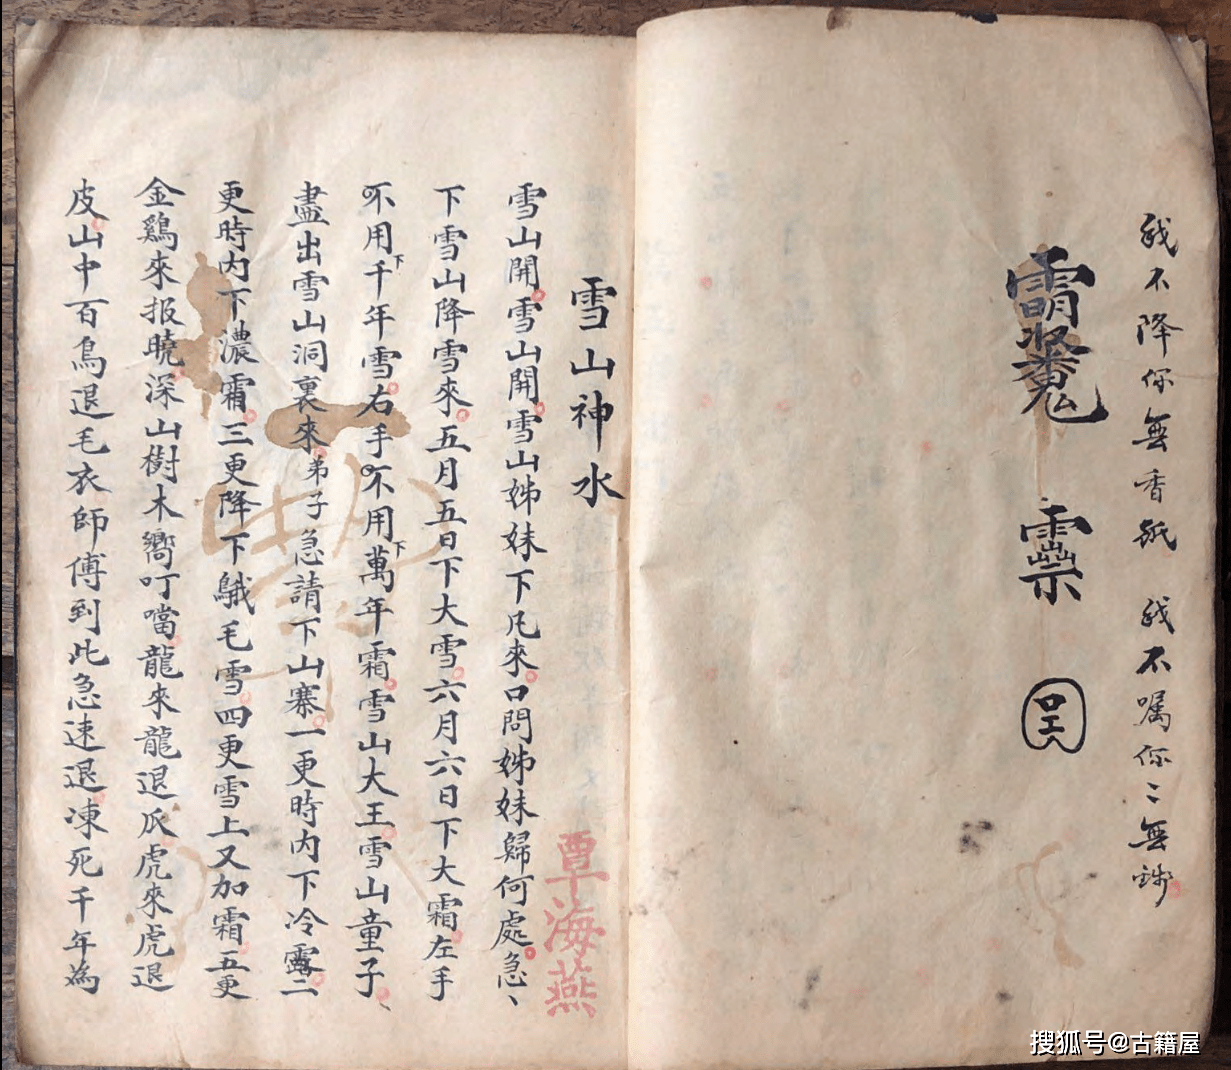 我不降你無香紙　我不嘱你〻無錢
雪山神水
覃海燕
雪山開雪山開雪山姊妹下凡來口問姊妹歸何處急〻
下雪山降雪來五月五日下大雪六月六日下大霜左手
不用下千年雪右手不用下萬年霜雪山大王雪山童子
盡出雪山洞裏來弟子急請下山寨一更時内下冷露二
更時内下濃霜三更降下鵝毛雪四更雪上又加霜五更
金鷄來报曉深山樹木嚮叮噹龍來龍退爪虎來虎退
皮山中百鳥退毛衣師傅到此急速退凍死千年為
搜狐号@古籍屋